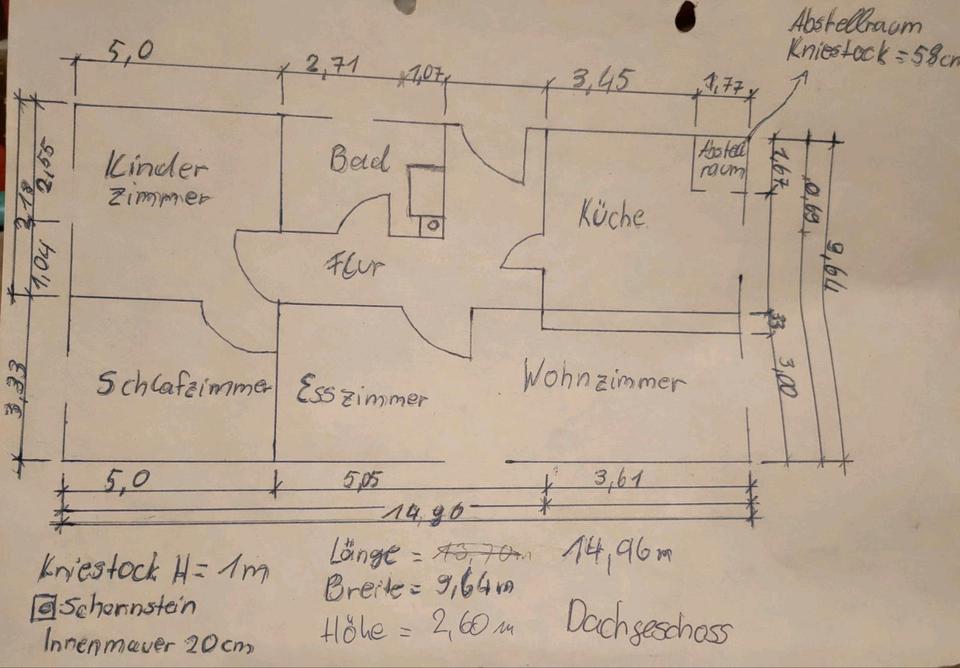 Abstellraum
Kniestock = 58cm
5,0
2,71
1,07
3,45
1,77
Kinder
zimmer
Bad
Abstell
raum
Küche
Flur
2,65
1,04
3,33
1,67
0,69
9,64
33
3,00
Schlafzimmer
Esszimmer
Wohnzimmer
5,0
5,05
3,61
14,96
Kniestock H = 1m
Schornstein
Innenmauer 20cm
Länge = 13,70m 14,96m
Breite = 9,64m
Höhe = 2,60m
Dachgeschoss